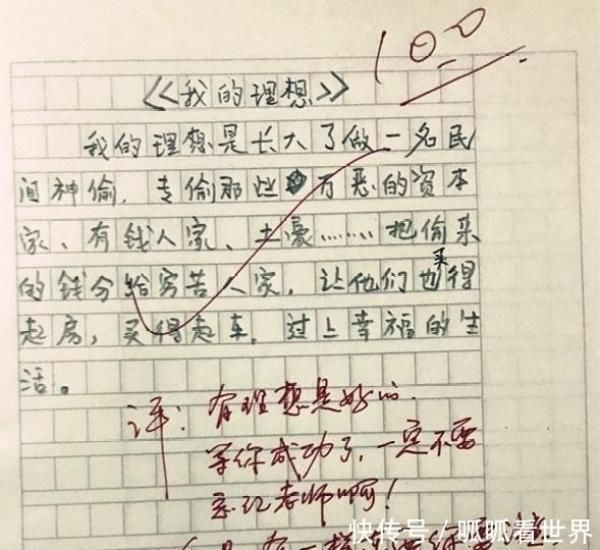 100
《我的理想》
我的理想是长大了做一名民
间神偷，专偷那些万恶的资本
家、有钱人家、土豪……把偷来
的钱分给穷苦人家，让他们也买得
起房，买得起车，过上幸福的生
活。
评：有理想是好的.
等你成功了，一定不要
忘记老师啊！
快传号／呱呱看世界